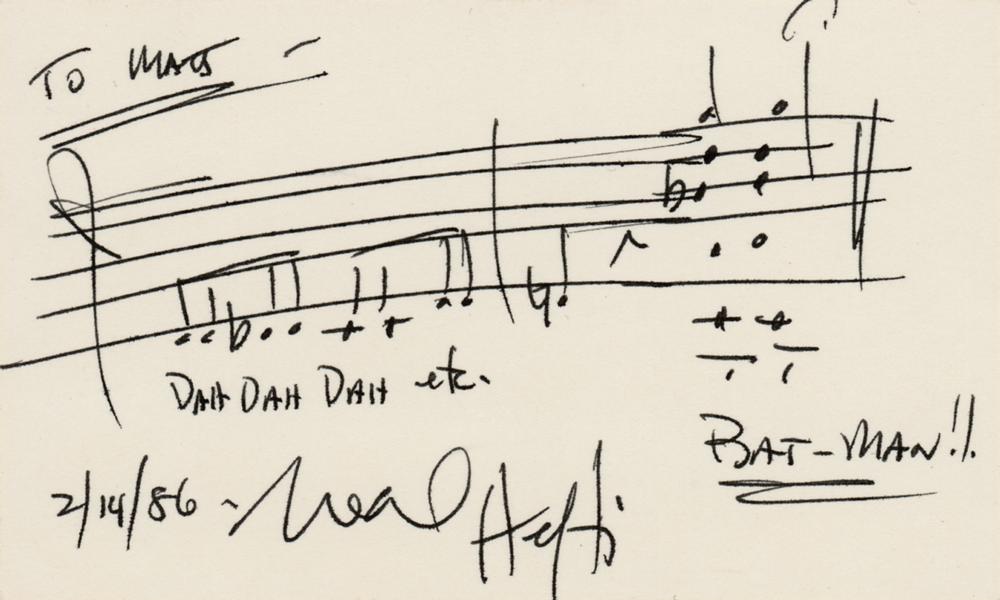 TO MATS -
DAH DAH DAH etc.
BAT-MAN!!
2/14/86 - Neal Hefti